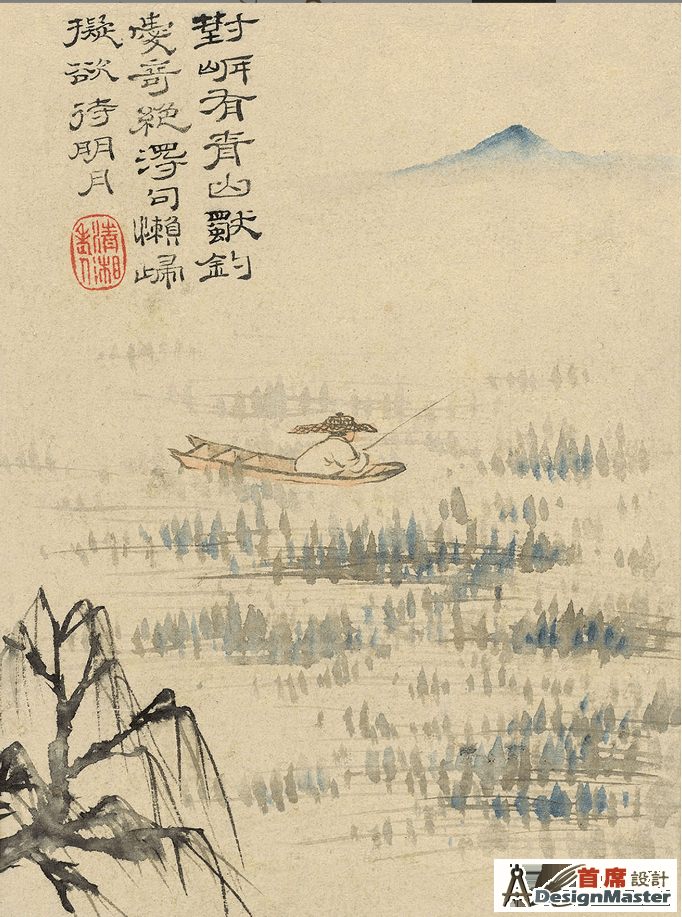 對岸有青山獨釣
愛奇絕淂句懶歸
擬欲待明月
清湘
老人
首席設計
DesignMaster